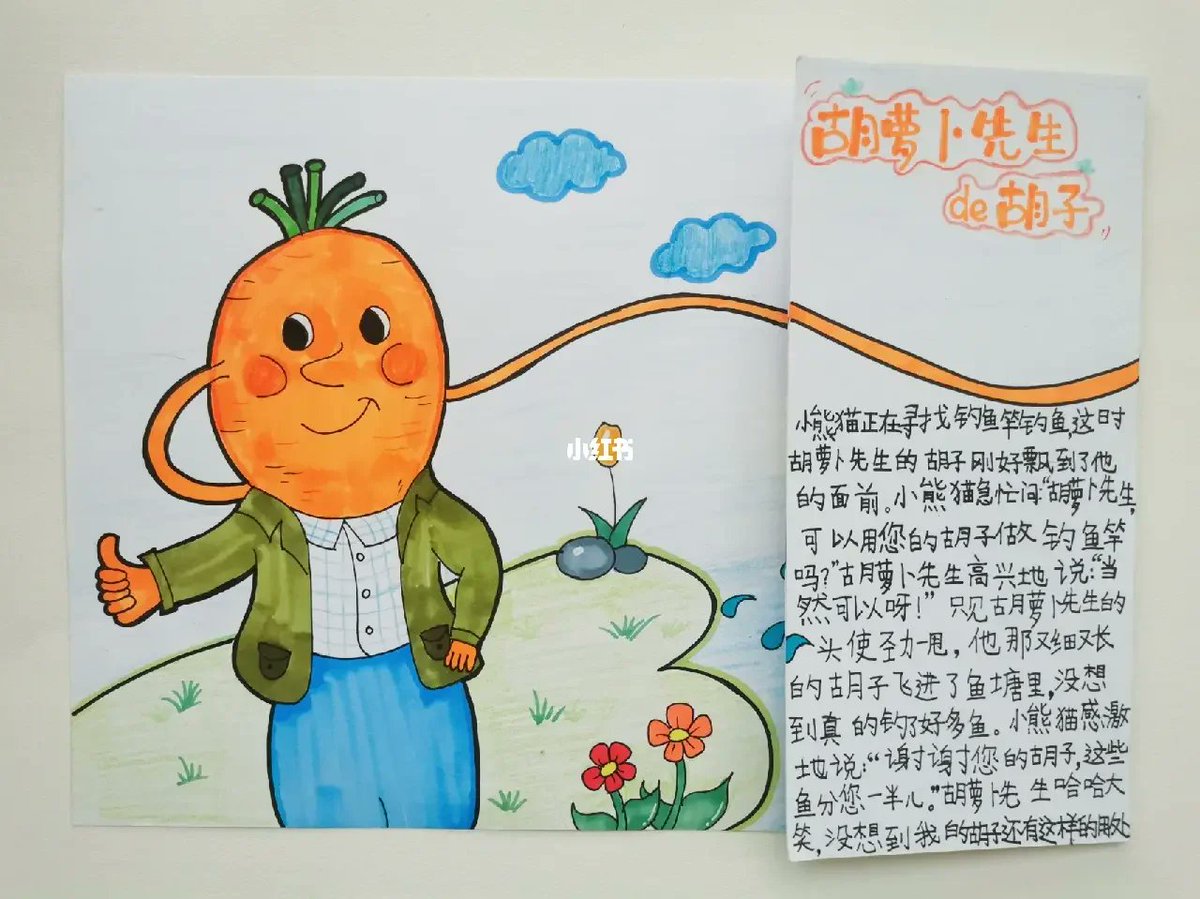 胡萝卜先生
de胡子
小熊猫正在寻找钓鱼竿钓鱼,这时
胡萝卜先生的胡子刚好飘到了他
的面前。小熊猫急忙问“胡萝卜先生,
可以用您的胡子做钓鱼竿
吗?”胡萝卜先生高兴地说:“当
然可以呀!”只见胡萝卜先生的
头使劲一甩,他那又细又长
的胡子飞进了鱼塘里,没想
到真的钓了好多鱼。小熊猫感激
地说:“谢谢您的胡子,这些
鱼分您一半儿。”胡萝卜先生哈哈大
笑,没想到我的胡子还有这样的用处
小红书